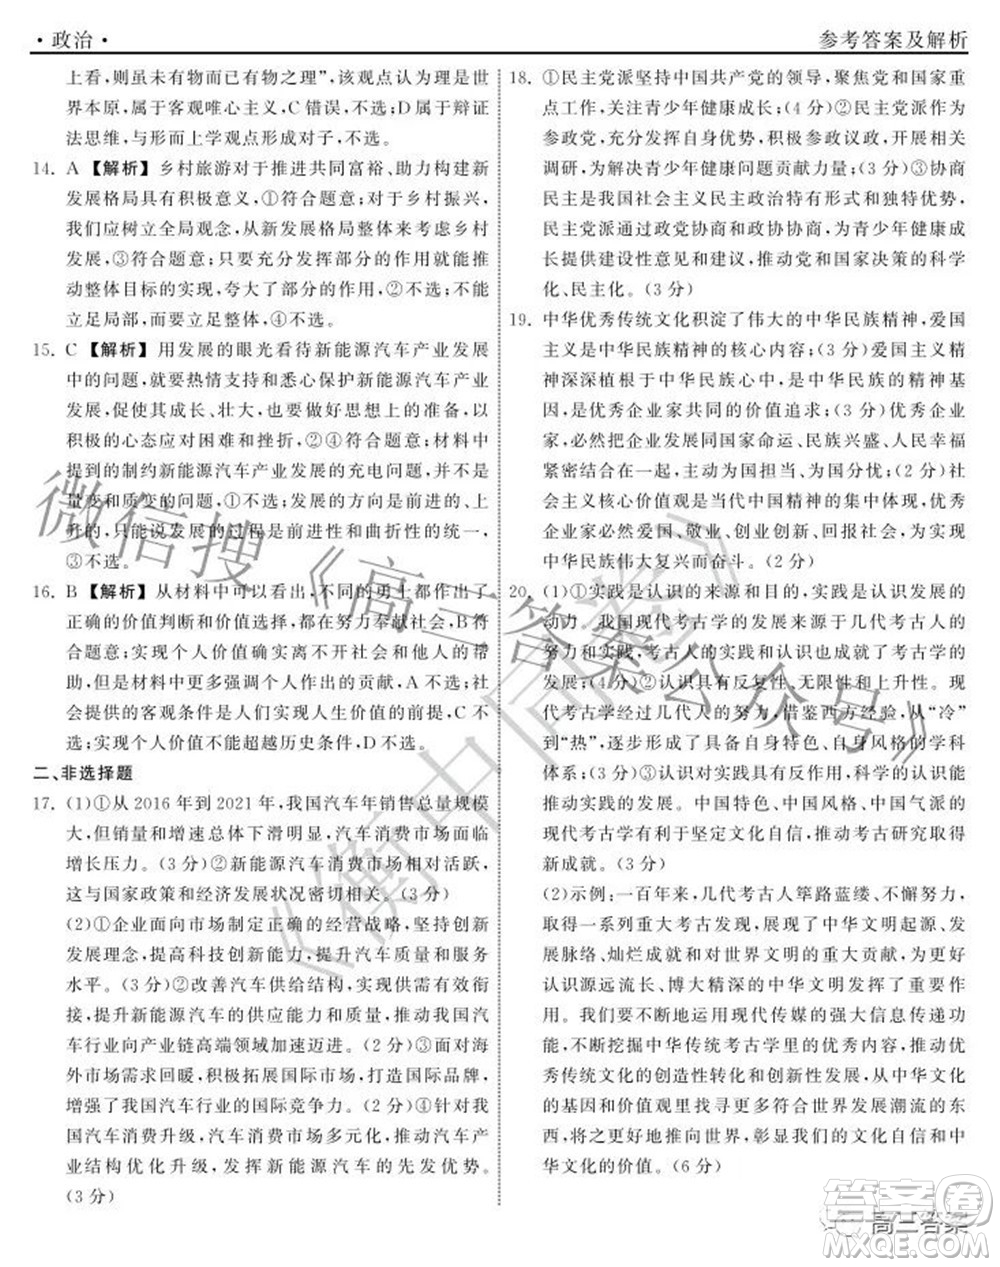 ·政治·
参考答案及解析
上看,则虽未有物而已有物之理”,该观点认为理是世
界本原,属于客观唯心主义,C错误,不选;D属于辩证
法思维,与形而上学观点形成对子,不选。
14. A 【解析】乡村旅游对于推进共同富裕、助力构建新
发展格局具有积极意义,①符合题意;对于乡村振兴,
我们应树立全局观念,从新发展格局整体来考虑乡村
发展,③符合题意;只要充分发挥部分的作用,就能推
动整体目标的实现,夸大了部分的作用,②不选;不能
立足局部,而要立足整体,④不选。
15. C 【解析】用发展的眼光看待新能源汽车产业发展
中的问题,就要热情支持和悉心保护新能源汽车产业
发展,促使其成长、壮大,也要做好思想上的准备,以
积极的心态应对困难和挫折,②④符合题意;材料中
提到的制约新能源汽车产业发展的充电问题,并不是
量变和质变的问题,①不选;发展的方向是前进的、上
升的,不能说发展的过程是前进性和曲折性的统一,
③不选。
16. B 【解析】从材料中可以看出,不同的勇士都作出了
正确的价值判断和价值选择,都在奉献社会,B符
合题意;实现个人价值确实离不开社会和他人的帮
助,但是材料中更多强调个人作出的贡献,A不选;社
会提供的客观条件是人们实现人生价值的前提,C不
选;实现个人价值不能超越历史条件,D不选。
二、非选择题
17. (1)①从2016年到2021年,我国汽车年销售总量规模
大,但销量和增速总体下滑明显,汽车消费市场面临
增长压力。(3分)②新能源汽车消费市场相对活跃,
这与国家政策和经济发展状况密切相关。(3分)
(2)①企业面向市场制定正确的经营战略,坚持创新
驱动理念,提高科技创新能力,提升汽车产品和服务
水平。(3分)②改善汽车供给结构,有效对接消费需
求,提升新能源汽车的供应能力和质量,推动我国汽
车行业向产业链高端领域加速迈进。(2分)③面对海
外市场需求回暖,积极拓展国际市场,打造国际品牌,
增强了我国汽车行业的国际竞争力。(2分)④针对我
国汽车消费升级,消费市场多元化,推动汽车产
业结构优化升级,发挥新能源汽车的先发优势。
(3分)
18. ①民主党派坚持中国共产党的领导,聚焦党和国家重
点工作,关注青少年健康成长;(4分)②民主党派作为
参政党,充分发挥自身优势,积极参政议政,开展相关
调研,为解决青少年健康问题贡献力量;(3分)③协商
民主是我国社会主义民主政治特有形式和独特优势,
民主党派通过政党协商和政协协商,为青少年健康成
长提出建设性意见和建议,推动党和国家决策的科学
化、民主化。(3分)
19. 中华优秀传统文化积淀了伟大的中华民族精神,爱国
主义是中华民族精神的核心内容;(3分)爱国主义精
神深深植根于中华民族心中,是中华民族的精神基
因,是优秀企业家共同的价值追求;(3分)优秀企业
家,必然把企业发展同国家命运、民族兴盛、人民幸福
紧密结合在一起,主动为国担当、为国分忧;(2分)社
会主义核心价值观是当代中国精神的集中体现,优秀
企业家必然爱国、敬业、创新创业、回报社会,为实现
中华民族伟大复兴而奋斗。(2分)
20. (1)①实践是认识的来源和目的,实践是认识发展的
动力。我国现代考古学的发展来源于几代考古人的
努力,几代考古人的实践和认识推动了考古学的发
展;(4分)②认识具有反复性、无限性和上升性。现代
考古学经过几代人的努力,借鉴西方经验,从“冷”
到“热”,逐步形成了具有自身特色、自身风格的学科
体系;(2分)③认识对实践具有反作用,科学的认识能
推动实践的发展。中国特色、中国风格、中国气派的
现代考古学有利于坚定文化自信,推动考古研究取得
新成就。(4分)
(2)示例:一百年来,几代考古人筚路蓝缕、不懈努力,
取得一系列重大考古发现,展现了中华文明起源、
发展脉络、灿烂成就和对世界文明的重大贡献,为更好
认识源远流长、博大精深的中华文明发挥了重要作
用。我们要不断提升运用现代传媒的意识与传播功
能,不断挖掘中华传统考古学里的优秀内容,实现优
秀传统文化的创造性转化和创新性发展,把中华文化
的基因和价值观更多地变成符合世界发展潮流的东
西,将之更好地推向世界,彰显我们的文化自信和中
华文化的价值。(6分)
微信搜《高三答案公众号》
《衡中同卷》
高三答案
答案圈
MXQE.COM